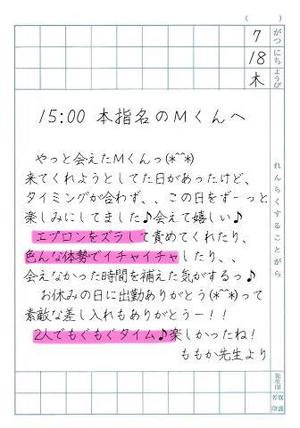 (　　)
7 がつ
18 にち
木 ようび
れんらくすることがら
15:00 本指名のMくんへ
やっと会えたMくんっ(*^^*)
来てくれようとしてた日があったけど、
タイミングが合わず、、この日をずーっと
楽しみにしてました♪会えて嬉しい♪
エプロンをズラして責めてくれたり、
色んな体勢でイチャイチャしたり、、
会えなかった時間を補えた気がするっ♪
お休みの日に出勤ありがとう(*^^*)って
素敵な差し入れもありがとうー！！
2人でもぐもぐタイム♪楽しかったね！
ももか先生より